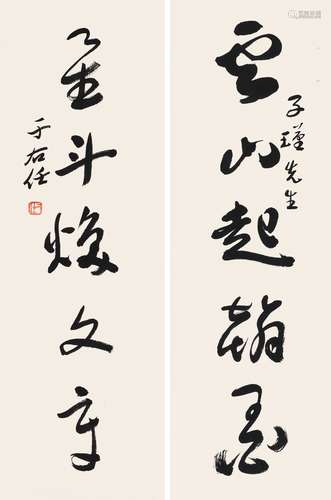 雲山起翰墨
子瑾先生
星斗煥文章
于右任